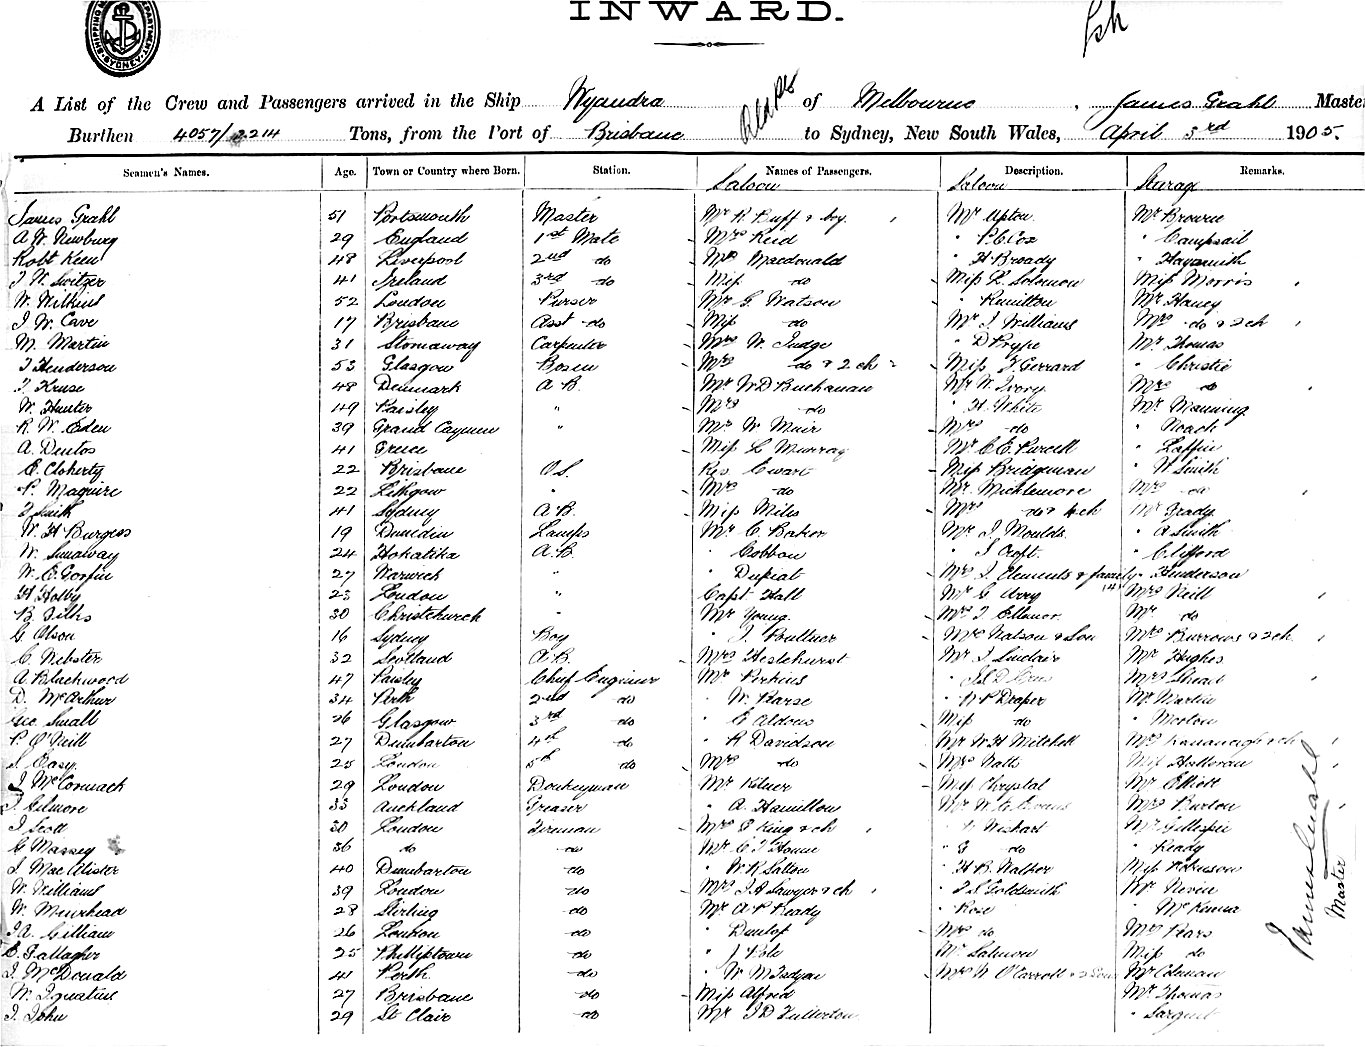 INWARD.
A List of the Crew and Passengers arrived in the Ship Wyandra of Melbourne, James Grahl Master
Burthen 4057/2214 Tons, from the Port of Brisbane to Sydney, New South Wales, April 3rd 1905.
Seamen's Names. Age. Town or Country where Born. Station. Names of Passengers. Description. Remarks.
Saloon Saloon
James Grahl 51 Portsmouth Master Mr R. Ruff & boy Mr Upton Mr Browne
A W. Newburg 29 England 1st Mate Mrs Reid " P.C. Cox "
Robt Keen 48 Liverpool 2nd do Mrs Macdonald " H Broady "
J W. Switzer 41 Ireland 3rd do Miss do Miss L. Solomon Miss Morris
W. Wilkins 52 London Purser Mr G. Watson " Mr Haney
J W. Cave 17 Brisbane Asst do Miss do Mr J. Williams Mrs do & 2 ch
M. Martin 31 Stornaway Carpenter Mrs W. Judge " D Mr Thomas
J Henderson 53 Glasgow Bosun Mrs do & 2 ch Miss Gerrard " Christie
J. Kruse 48 Denmark A.B. Mr W D Buchanan Mr W. Ivory Mrs do
W. Hunter 49 Paisley " Mrs do " H. White Mr Manning
R. W. Eden 39 Grand Caymen " Mr W Muir Mrs do " Roach
A. Dentos 41 Greece Miss L Murray Mr C E. Purcell " Laffin
E. Cloherty 22 Brisbane O.S. Rev Ewart Miss Bridgman " W Smith
P. Maguire 22 Lithgow " Mrs do Mr. Micklemore Mrs do
J Smith 41 Sydney A.B. Miss Miles Mrs do & 4 ch Mr Grady
W. H Burgess 19 Dunedin Lamps Mr C. Baker Mr J. Moulds " A Smith
W. 24 Hokatika A.B. " Cobbon " J Croft " Clifford
W. E. 27 Warwick " " Mrs J. Clements & family " Henderson
H Holby 23 London " Capt Hall Mr G Ivory Mrs Neill
B. 30 Christchurch " Mr Young Mrs T. Ellanor Mr do
G Olson 16 Sydney Boy " J. Mrs Watson & Son Mrs Burrows & 2 ch
C. Webster 32 Scotland A.B. Mrs Heslehurst Mr J. Sinclair Mr Hughes
A Blackwood 47 Paisley Chief Engineer Mr Perkins Mrs
D. McArthur 34 Perth 2nd do " W. Pearse " Draper Mr Martin
Geo Small 26 Glasgow 3rd do " C Aldous Miss do " Morton
P. O'Neill 27 Dumbarton 4th do " R Davidson Mr W H Mitchell Mrs Kavanagh & ch
J. Easy 25 London 5th do Mrs do Mrs Miss Holloran
J McCormack 29 London Donkeyman Mr Kilner Miss Chrystal Mr Elliott
J. Gilmore 33 Auckland Greaser " A. Hamilton Mr W. G. Mrs Burton
J Scott 30 London Fireman Mrs E King & ch " Wishart Mr Gillespie
G Massey 36 do do Mr C J Howe " G do " Ready
J. MacAlister 40 Dumbarton do " W. R Salton " H B. Walker Miss Robinson
W. Williams 39 London do Mrs J. A Sawyer & ch " J S Goldsmith Mr Nevin
W. Muirhead 28 Stirling do Mr A P Ready " Rose " McKenna
J A. Gilliam 26 London do " Dunlop Mrs do Mrs Pears
E. Gallagher 25 Philliptown do " J Pole Mr Salmon Miss do
J. McDonald 41 Perth do " W. McFadyan Mrs W O'Carroll & 2 Sons Mr Colman
W. Ignatius 27 Brisbane do Miss Alfred Mr Thomas
J. John 29 St Clair do Mr J D Fullerton " Sargent
James Grahl
Master